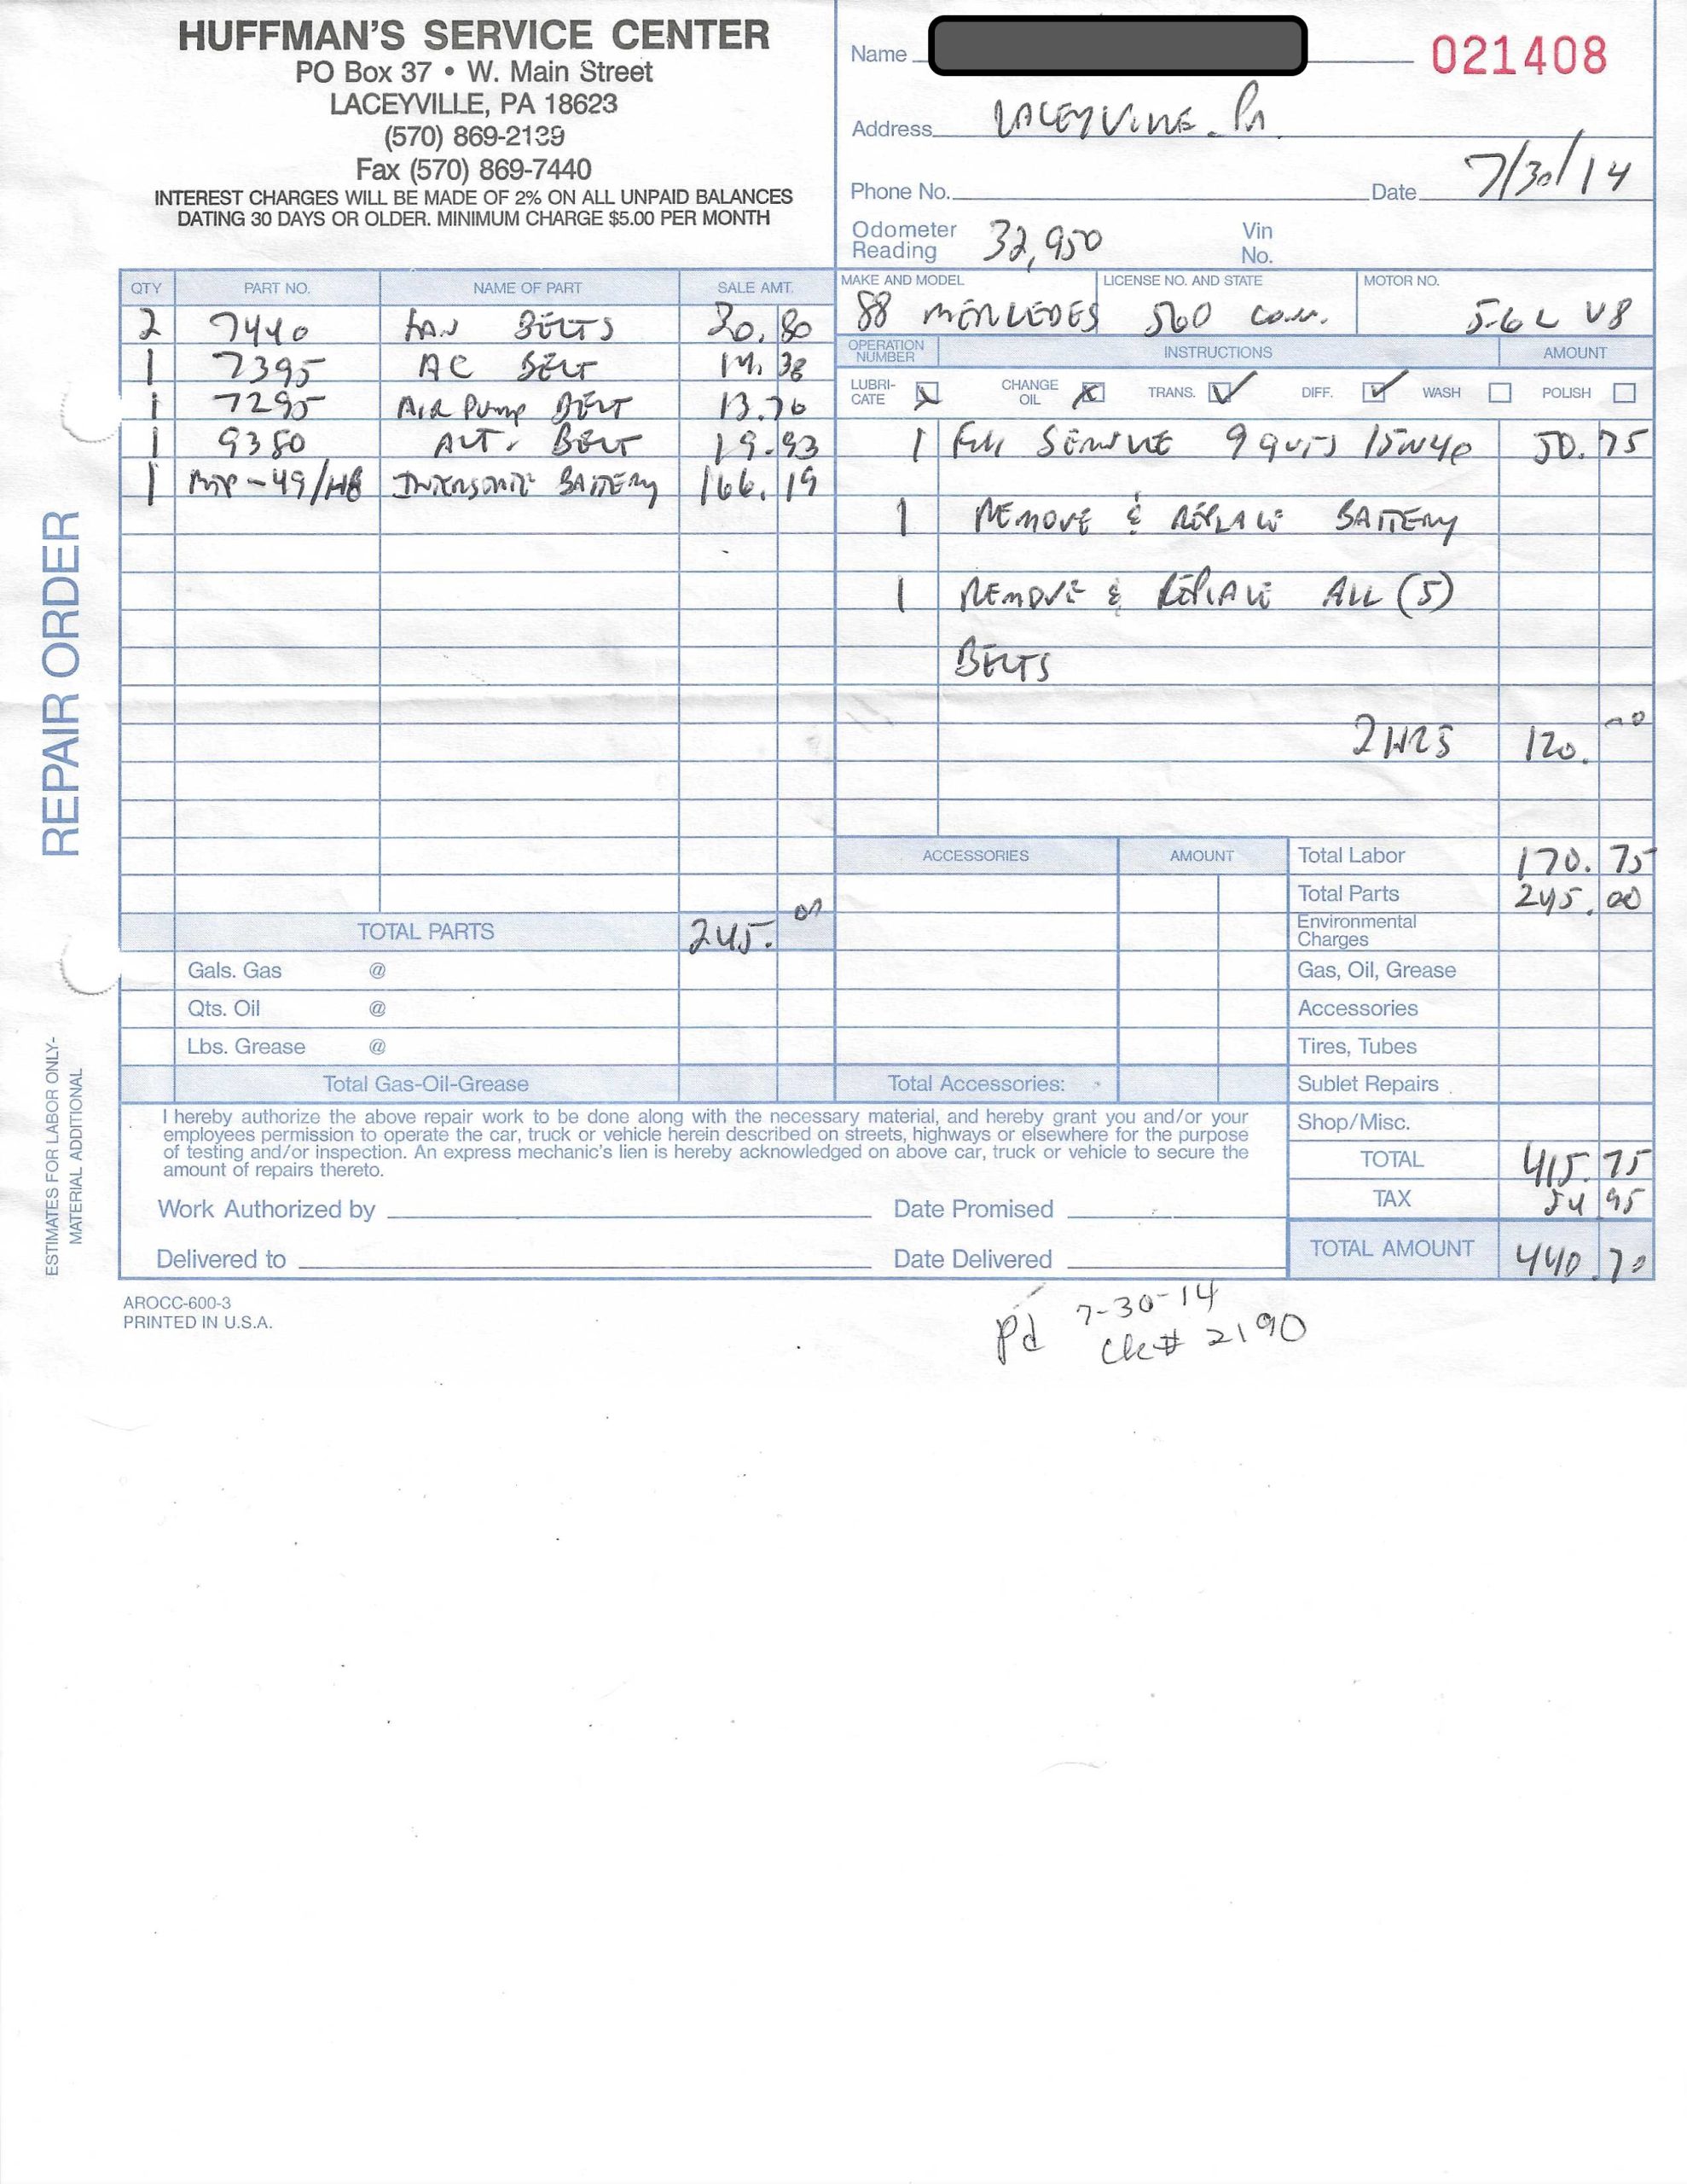 HUFFMAN'S SERVICE CENTER
PO Box 37 • W. Main Street
LACEYVILLE, PA 18623
(570) 869-2139
Fax (570) 869-7440
INTEREST CHARGES WILL BE MADE OF 2% ON ALL UNPAID BALANCES
DATING 30 DAYS OR OLDER. MINIMUM CHARGE $5.00 PER MONTH
Name 021408
Address LACEYVILLE. Pa.
Phone No. Date 7/30/14
Odometer Reading 32,950 Vin No.
MAKE AND MODEL LICENSE NO. AND STATE MOTOR NO.
88 MERCEDES 560 5.6L V8
QTY PART NO. NAME OF PART SALE AMT.
2 7440 FAN BELTS 30.80
1 7395 AC BELT 14.38
1 7295 AIR Pump BELT 13.70
1 9380 ALT. BELT 19.93
1 MTP-49/H8 INTERSTATE BATTERY 166.19
TOTAL PARTS 245.00
Gals. Gas @
Qts. Oil @
Lbs. Grease @
Total Gas-Oil-Grease
OPERATION NUMBER INSTRUCTIONS AMOUNT
LUBRI-CATE CHANGE OIL TRANS. DIFF. WASH POLISH
1 Full SERVICE 9 qurts 15W40 50.75
1 REMOVE & REPLACE BATTERY
1 REMOVE & REPLACE ALL (5)
BELTS
2 HRS 120.00
ACCESSORIES AMOUNT
Total Accessories:
Total Labor 170.75
Total Parts 245.00
Environmental Charges
Gas, Oil, Grease
Accessories
Tires, Tubes
Sublet Repairs
Shop/Misc.
TOTAL 415.75
TAX 95
TOTAL AMOUNT 440.70
I hereby authorize the above repair work to be done along with the necessary material, and hereby grant you and/or your
employees permission to operate the car, truck or vehicle herein described on streets, highways or elsewhere for the purpose
of testing and/or inspection. An express mechanic's lien is hereby acknowledged on above car, truck or vehicle to secure the
amount of repairs thereto.
Work Authorized by Date Promised
Delivered to Date Delivered
AROCC-600-3
PRINTED IN U.S.A.
Pd 7-30-14
Ck# 2190
REPAIR ORDER
ESTIMATES FOR LABOR ONLY-
MATERIAL ADDITIONAL